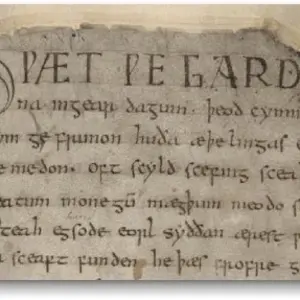 HǷÆT ǷE GARD
na ingear dagum. þeod cyninga
ym ge frunon huða æþelingas e
medon. oft scyld scefing sceaþ
eatum monegū mægþum meodo s
teah egsode eorl syððan ærest
sceaft funden he þæs frofre g